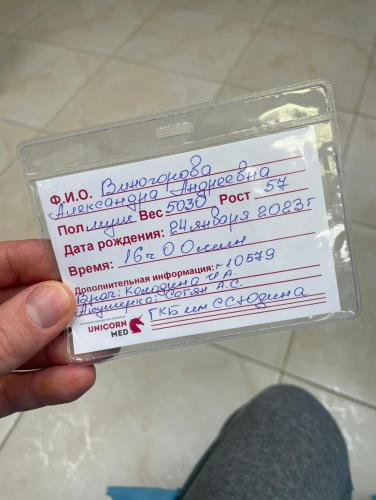 Ф.И.О. Виногорова
Александра Андреевна
Пол муж Вес 5030 Рост 57
Дата рождения: 24 января 2023г
Время: 16ч 00 мин
Дополнительная информация: г 10579
Врач: Колодина И.А.
Акушерка: Сотян А.С.
ГКБ им С С Юдина
UNICORN
MED